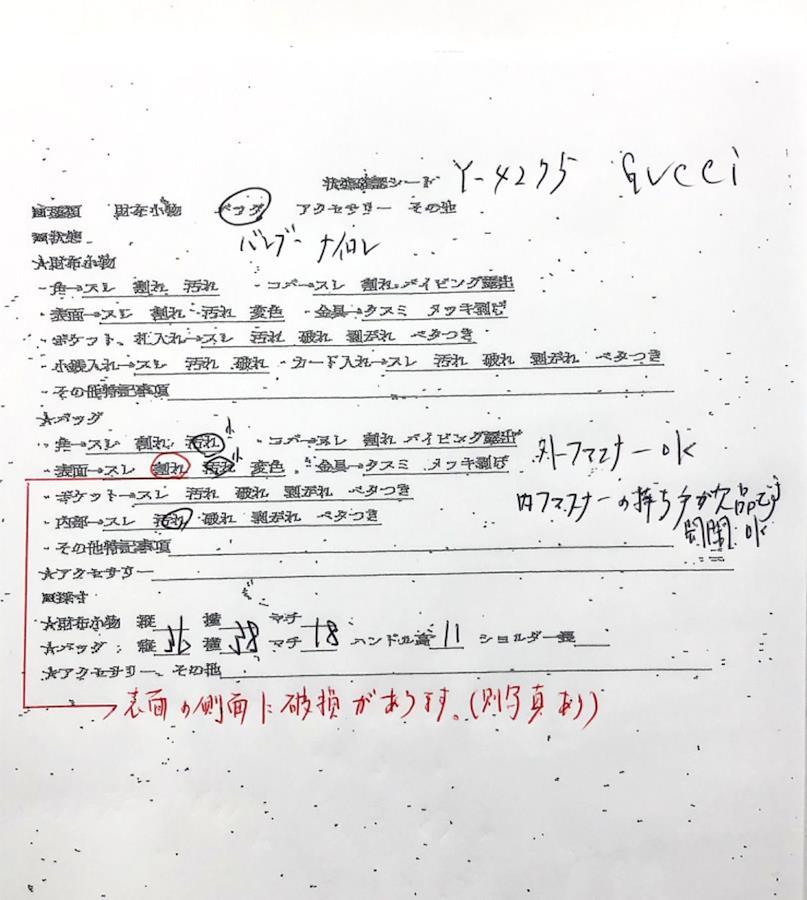 状態確認シート Y-4275 GUCCI
財布小物 バッグ アクセサリー その他
状態 バンブー ナイロン
★財布小物
・角→スレ 割れ 汚れ ・コバ→スレ 割れ パイピング露出
・表面→スレ 割れ 汚れ 変色 ・金具→クスミ メッキ剥げ
・ポケット、札入れ→スレ 汚れ 破れ 剥がれ ベタつき
・小銭入れ→スレ 汚れ 破れ ・カード入れ→スレ 汚れ 破れ 剥がれ ベタつき
・その他特記事項
★バッグ
・角→スレ 割れ 汚れ 小 ・コバ→スレ 割れ パイピング露出
・表面→スレ 割れ 汚れ 小 変色 ・金具→クスミ メッキ剥げ
外ファスナーOK
・ポケット→スレ 汚れ 破れ 剥がれ ベタつき
内ファスナーの持ち手が欠品です
・内部→スレ 汚れ 破れ 剥がれ ベタつき
開閉OK
・その他特記事項
★アクセサリー
採寸
★財布小物 縦 横 マチ
★バッグ: 縦 横 38 マチ 18 ハンドル高 11 ショルダー長
★アクセサリー、その他
表面の側面に破損があります。(別写真あり)